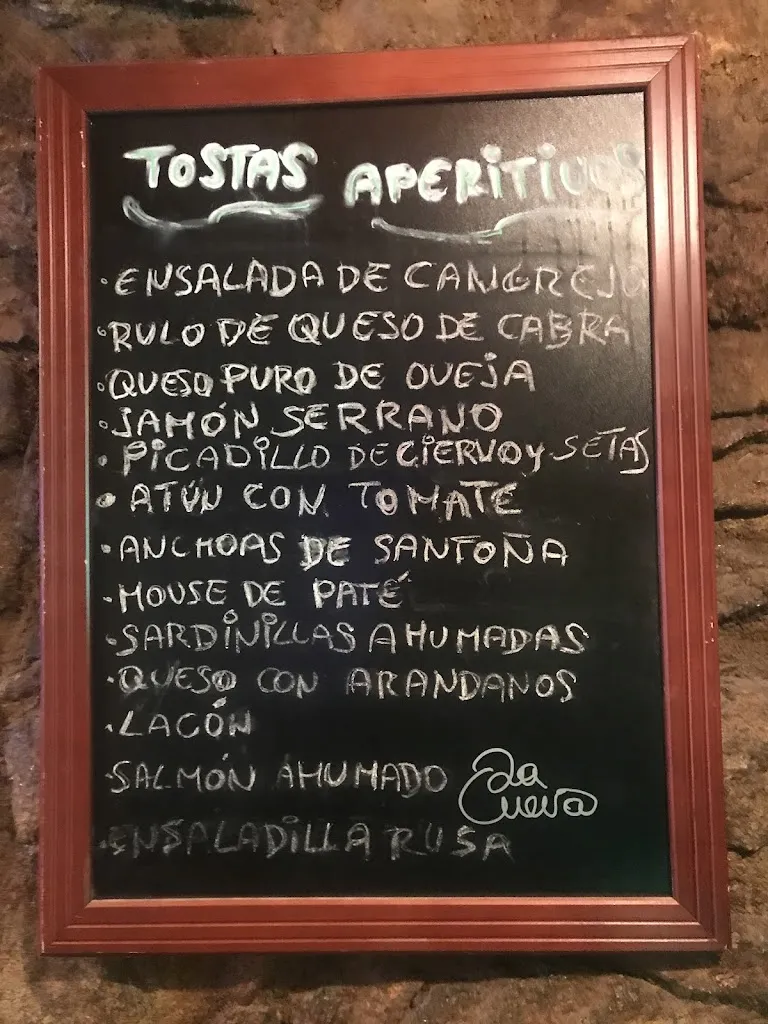 TOSTAS APERITIVOS
·ENSALADA DE CANGREJO
·RULO DE QUESO DE CABRA
·QUESO PURO DE OVEJA
·JAMÓN SERRANO
·PICADILLO DE CIERVO Y SETAS
·ATÚN CON TOMATE
·ANCHOAS DE SANTOÑA
·MOUSE DE PATÉ
·SARDINILLAS AHUMADAS
·QUESO CON ARANDANOS
·LACÓN
·SALMÓN AHUMADO
La Cueva
·ENSALADILLA RUSA